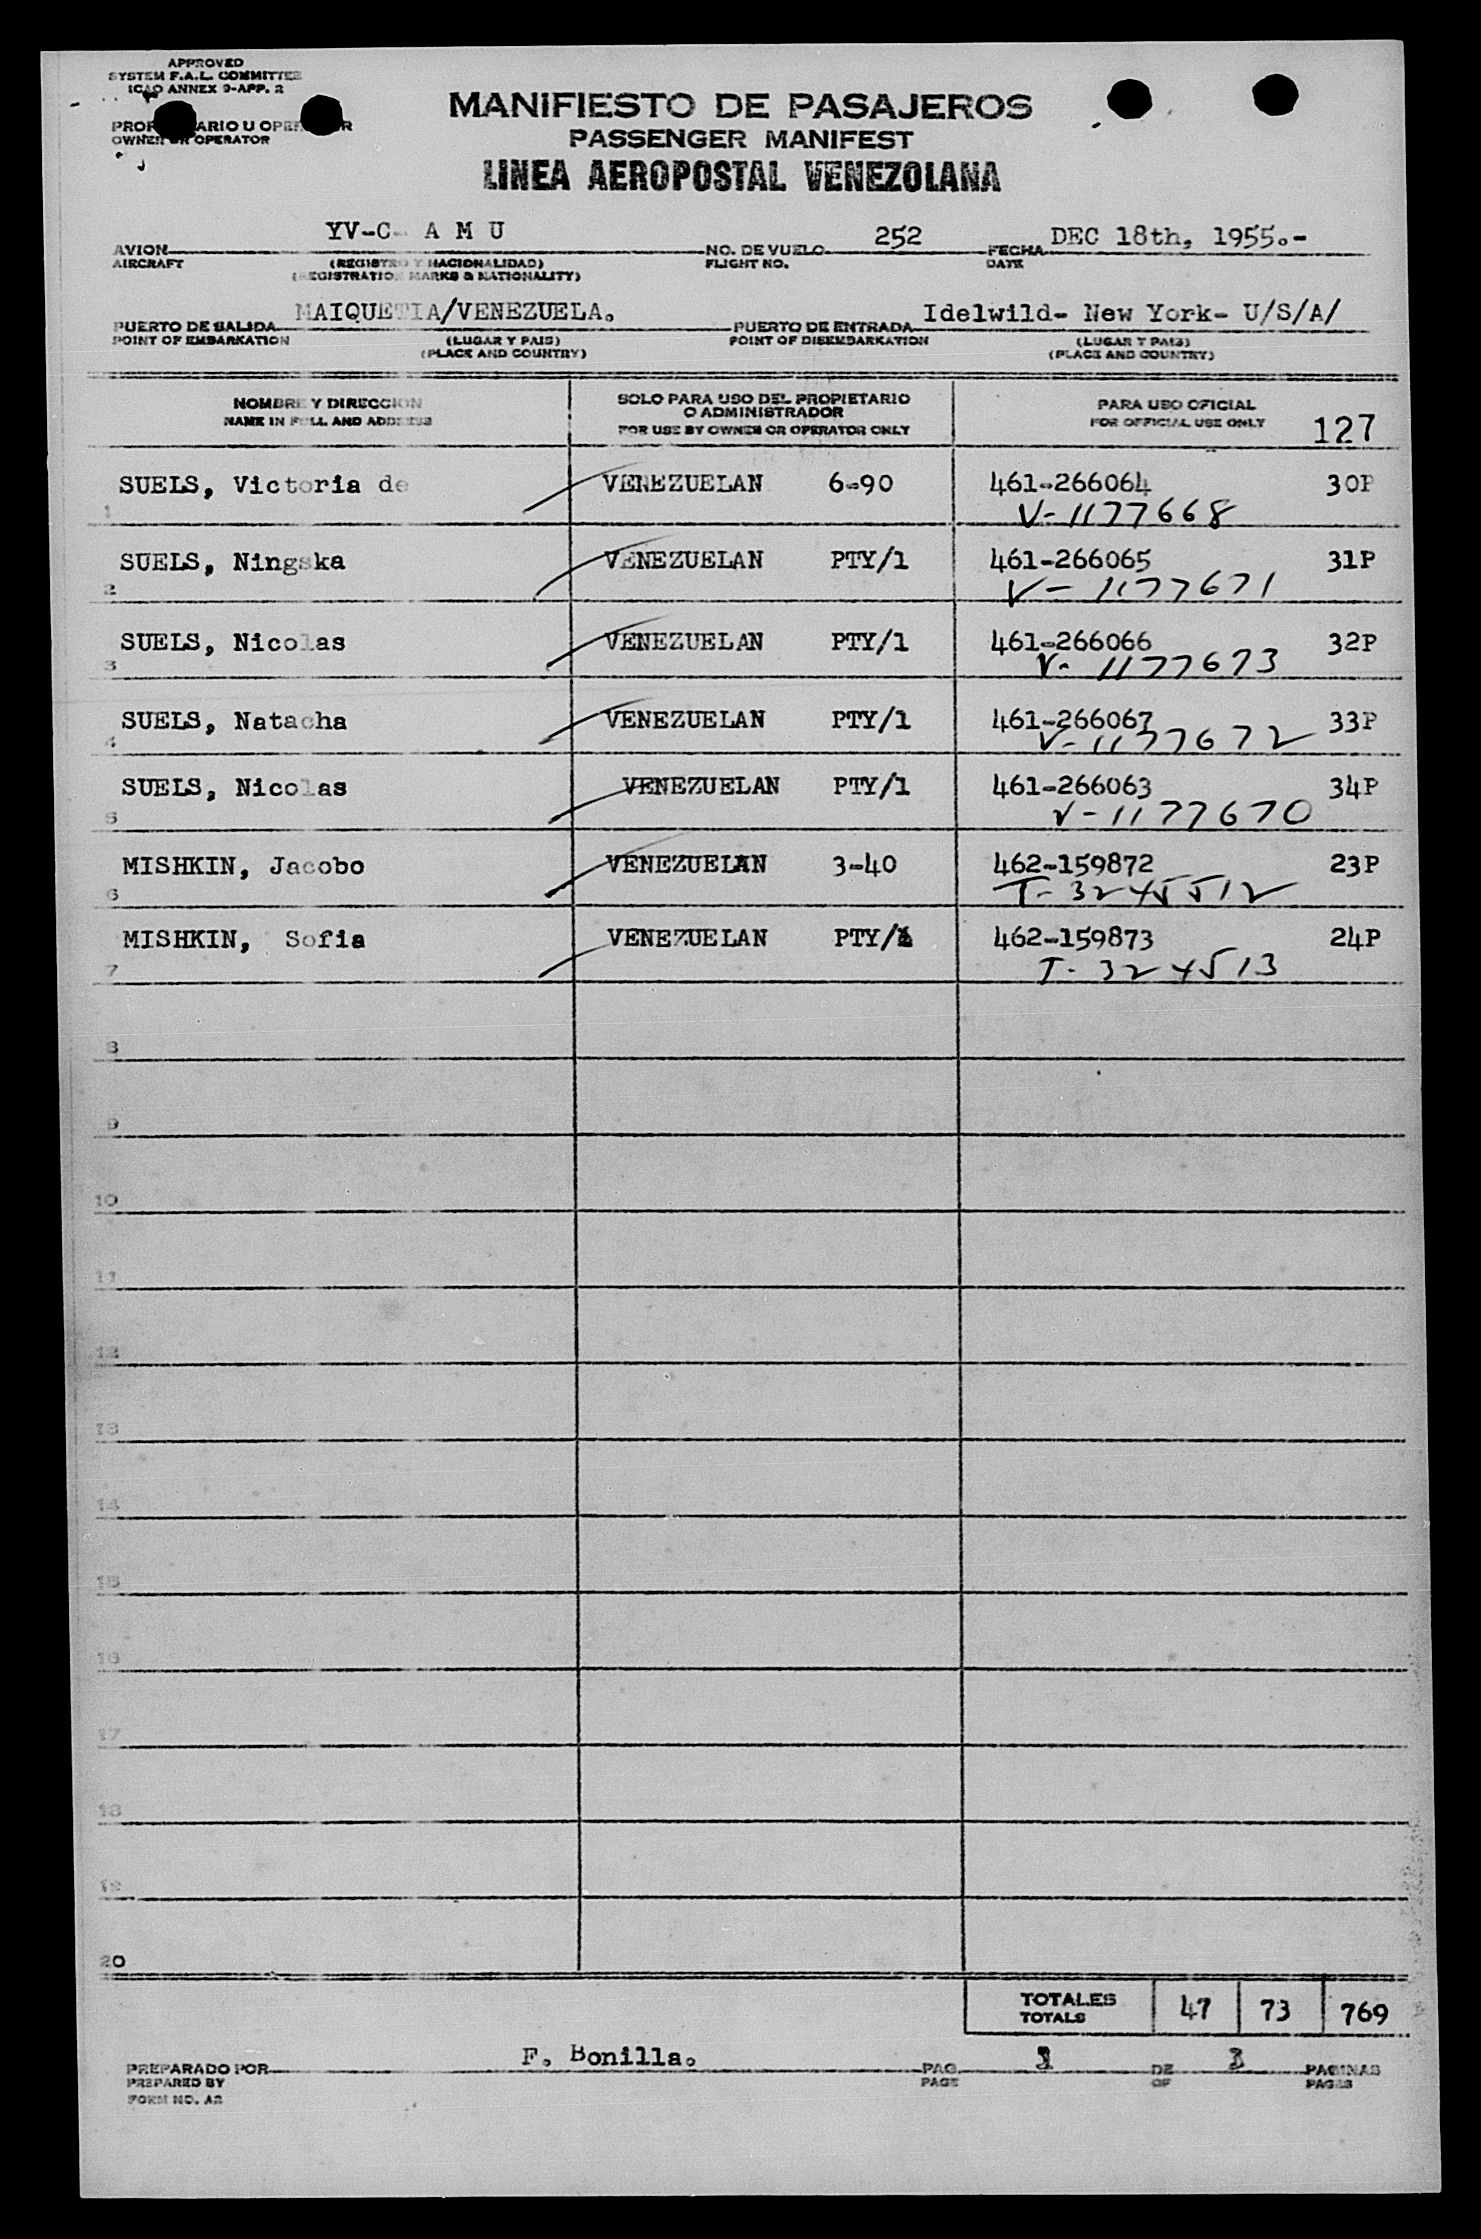 APPROVED
SYSTEM F.A.L. COMMITTEE
ICAO ANNEX 9-APP. 2
MANIFIESTO DE PASAJEROS
PASSENGER MANIFEST
PROPIETARIO U OPERADOR
OWNER OR OPERATOR
LINEA AEROPOSTAL VENEZOLANA
AVION YV-C- A M U NO. DE VUELO 252 FECHA DEC 18th, 1955.-
AIRCRAFT (REGISTRO Y NACIONALIDAD) FLIGHT NO. DATE
(REGISTRATION MARKS & NATIONALITY)
PUERTO DE SALIDA MAIQUETIA/VENEZUELA. PUERTO DE ENTRADA Idelwild- New York- U/S/A/
POINT OF EMBARKATION (LUGAR Y PAIS) POINT OF DISEMBARKATION (LUGAR Y PAIS)
(PLACE AND COUNTRY) (PLACE AND COUNTRY)
NOMBRE Y DIRECCION SOLO PARA USO DEL PROPIETARIO PARA USO OFICIAL
O ADMINISTRADOR
NAME IN FULL AND ADDRESS FOR USE BY OWNER OR OPERATOR ONLY FOR OFFICIAL USE ONLY 127
SUELS, Victoria de VENEZUELAN 6-90 461-266064 30P
1 V-1177668
SUELS, Ningska VENEZUELAN PTY/1 461-266065 31P
2 V-1177671
SUELS, Nicolas VENEZUELAN PTY/1 461-266066 32P
3 V-1177673
SUELS, Natacha VENEZUELAN PTY/1 461-266067 33P
4 V-1177672
SUELS, Nicolas VENEZUELAN PTY/1 461-266063 34P
5 V-1177670
MISHKIN, Jacobo VENEZUELAN 3-40 462-159872 23P
6 T-3245512
MISHKIN, Sofia VENEZUELAN 462-159873 24P
7 T-324513
8
9
10
11
12
13
14
15
16
17
18
19
20
TOTALES 47 73 769
TOTALS
PREPARADO POR F. Bonilla. PAG. DE PAGINAS
PREPARED BY PAGE OF PAGES
FORM NO. A2